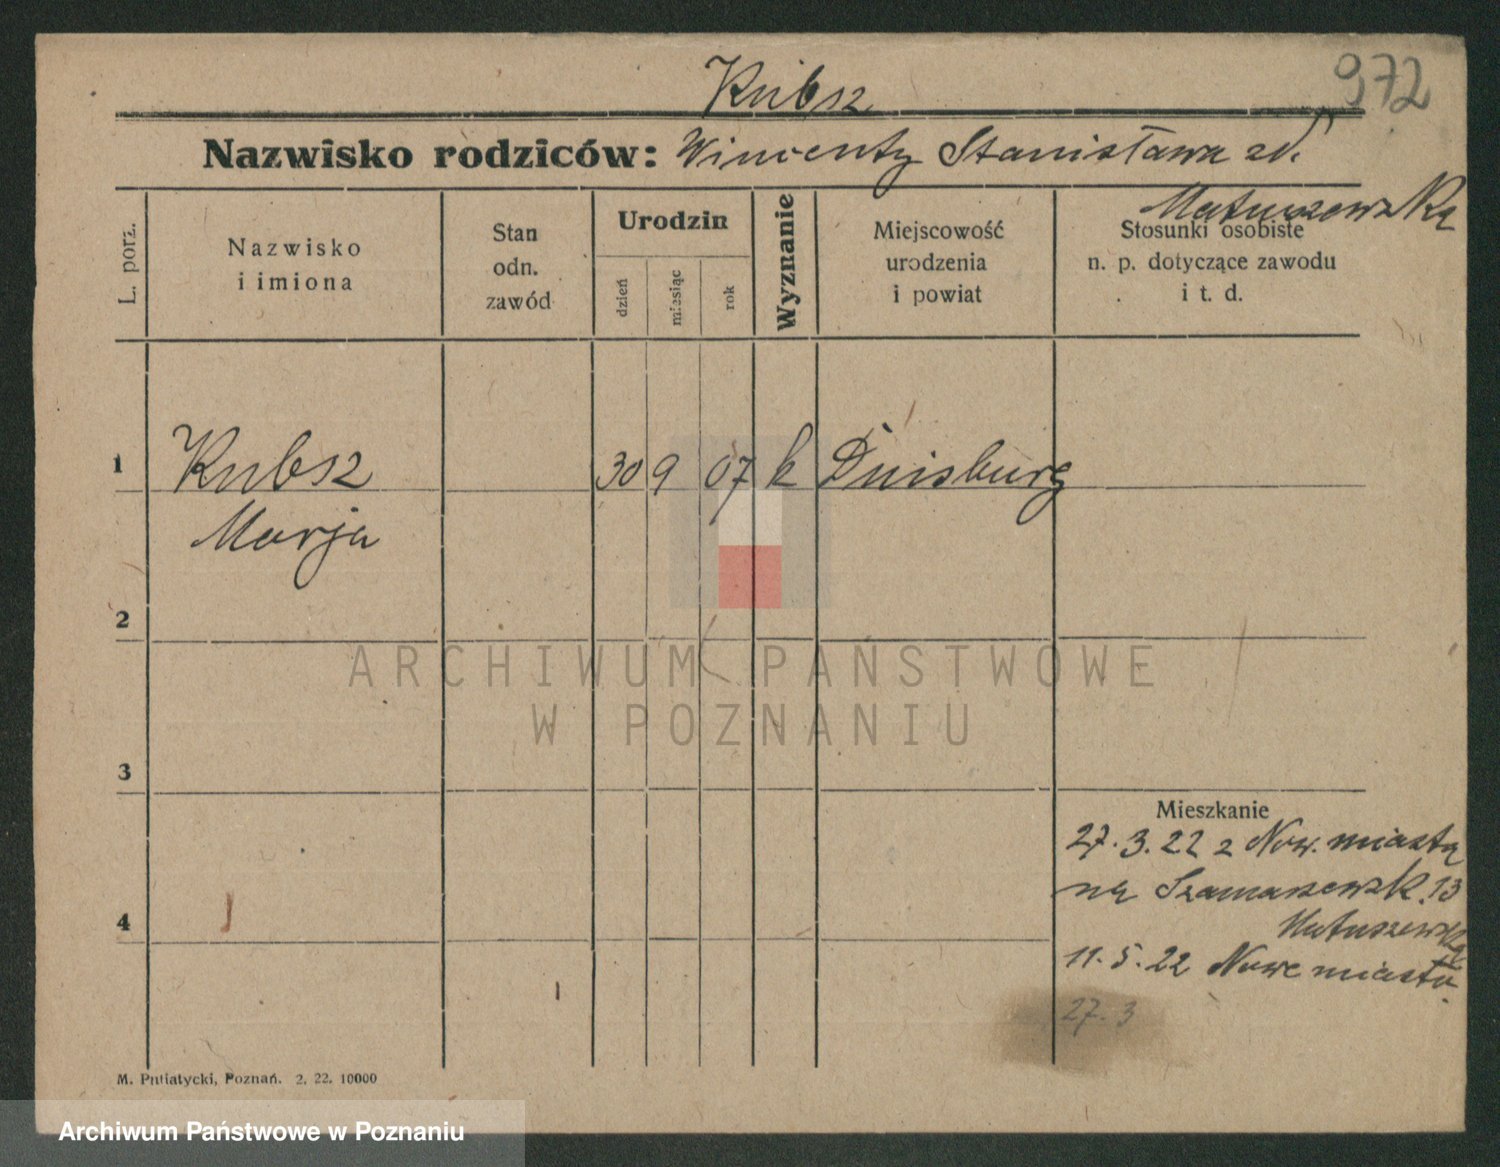 972
Kubsz
Nazwisko rodziców: Wincenty Stanisława zd.
Matuszewska
L. porz.
Nazwisko i imiona
Stan odn. zawód
Urodzin
dzień
miesiąc
rok
Wyznanie
Miejscowość urodzenia i powiat
Stosunki osobiste n. p. dotyczące zawodu i t. d.
1 Kubsz 30 9 07 k Duisburg
Marja
2
ARCHIWUM PAŃSTWOWE
W POZNANIU
3
Mieszkanie
27. 3. 22 z Now. miasta
na Szamarzewsk. 13
4
Matuszewska
11. 5. 22 Nowe miasto.
27. 3
M. Putiatycki, Poznań. 2. 22. 10000
Archiwum Państwowe w Poznaniu